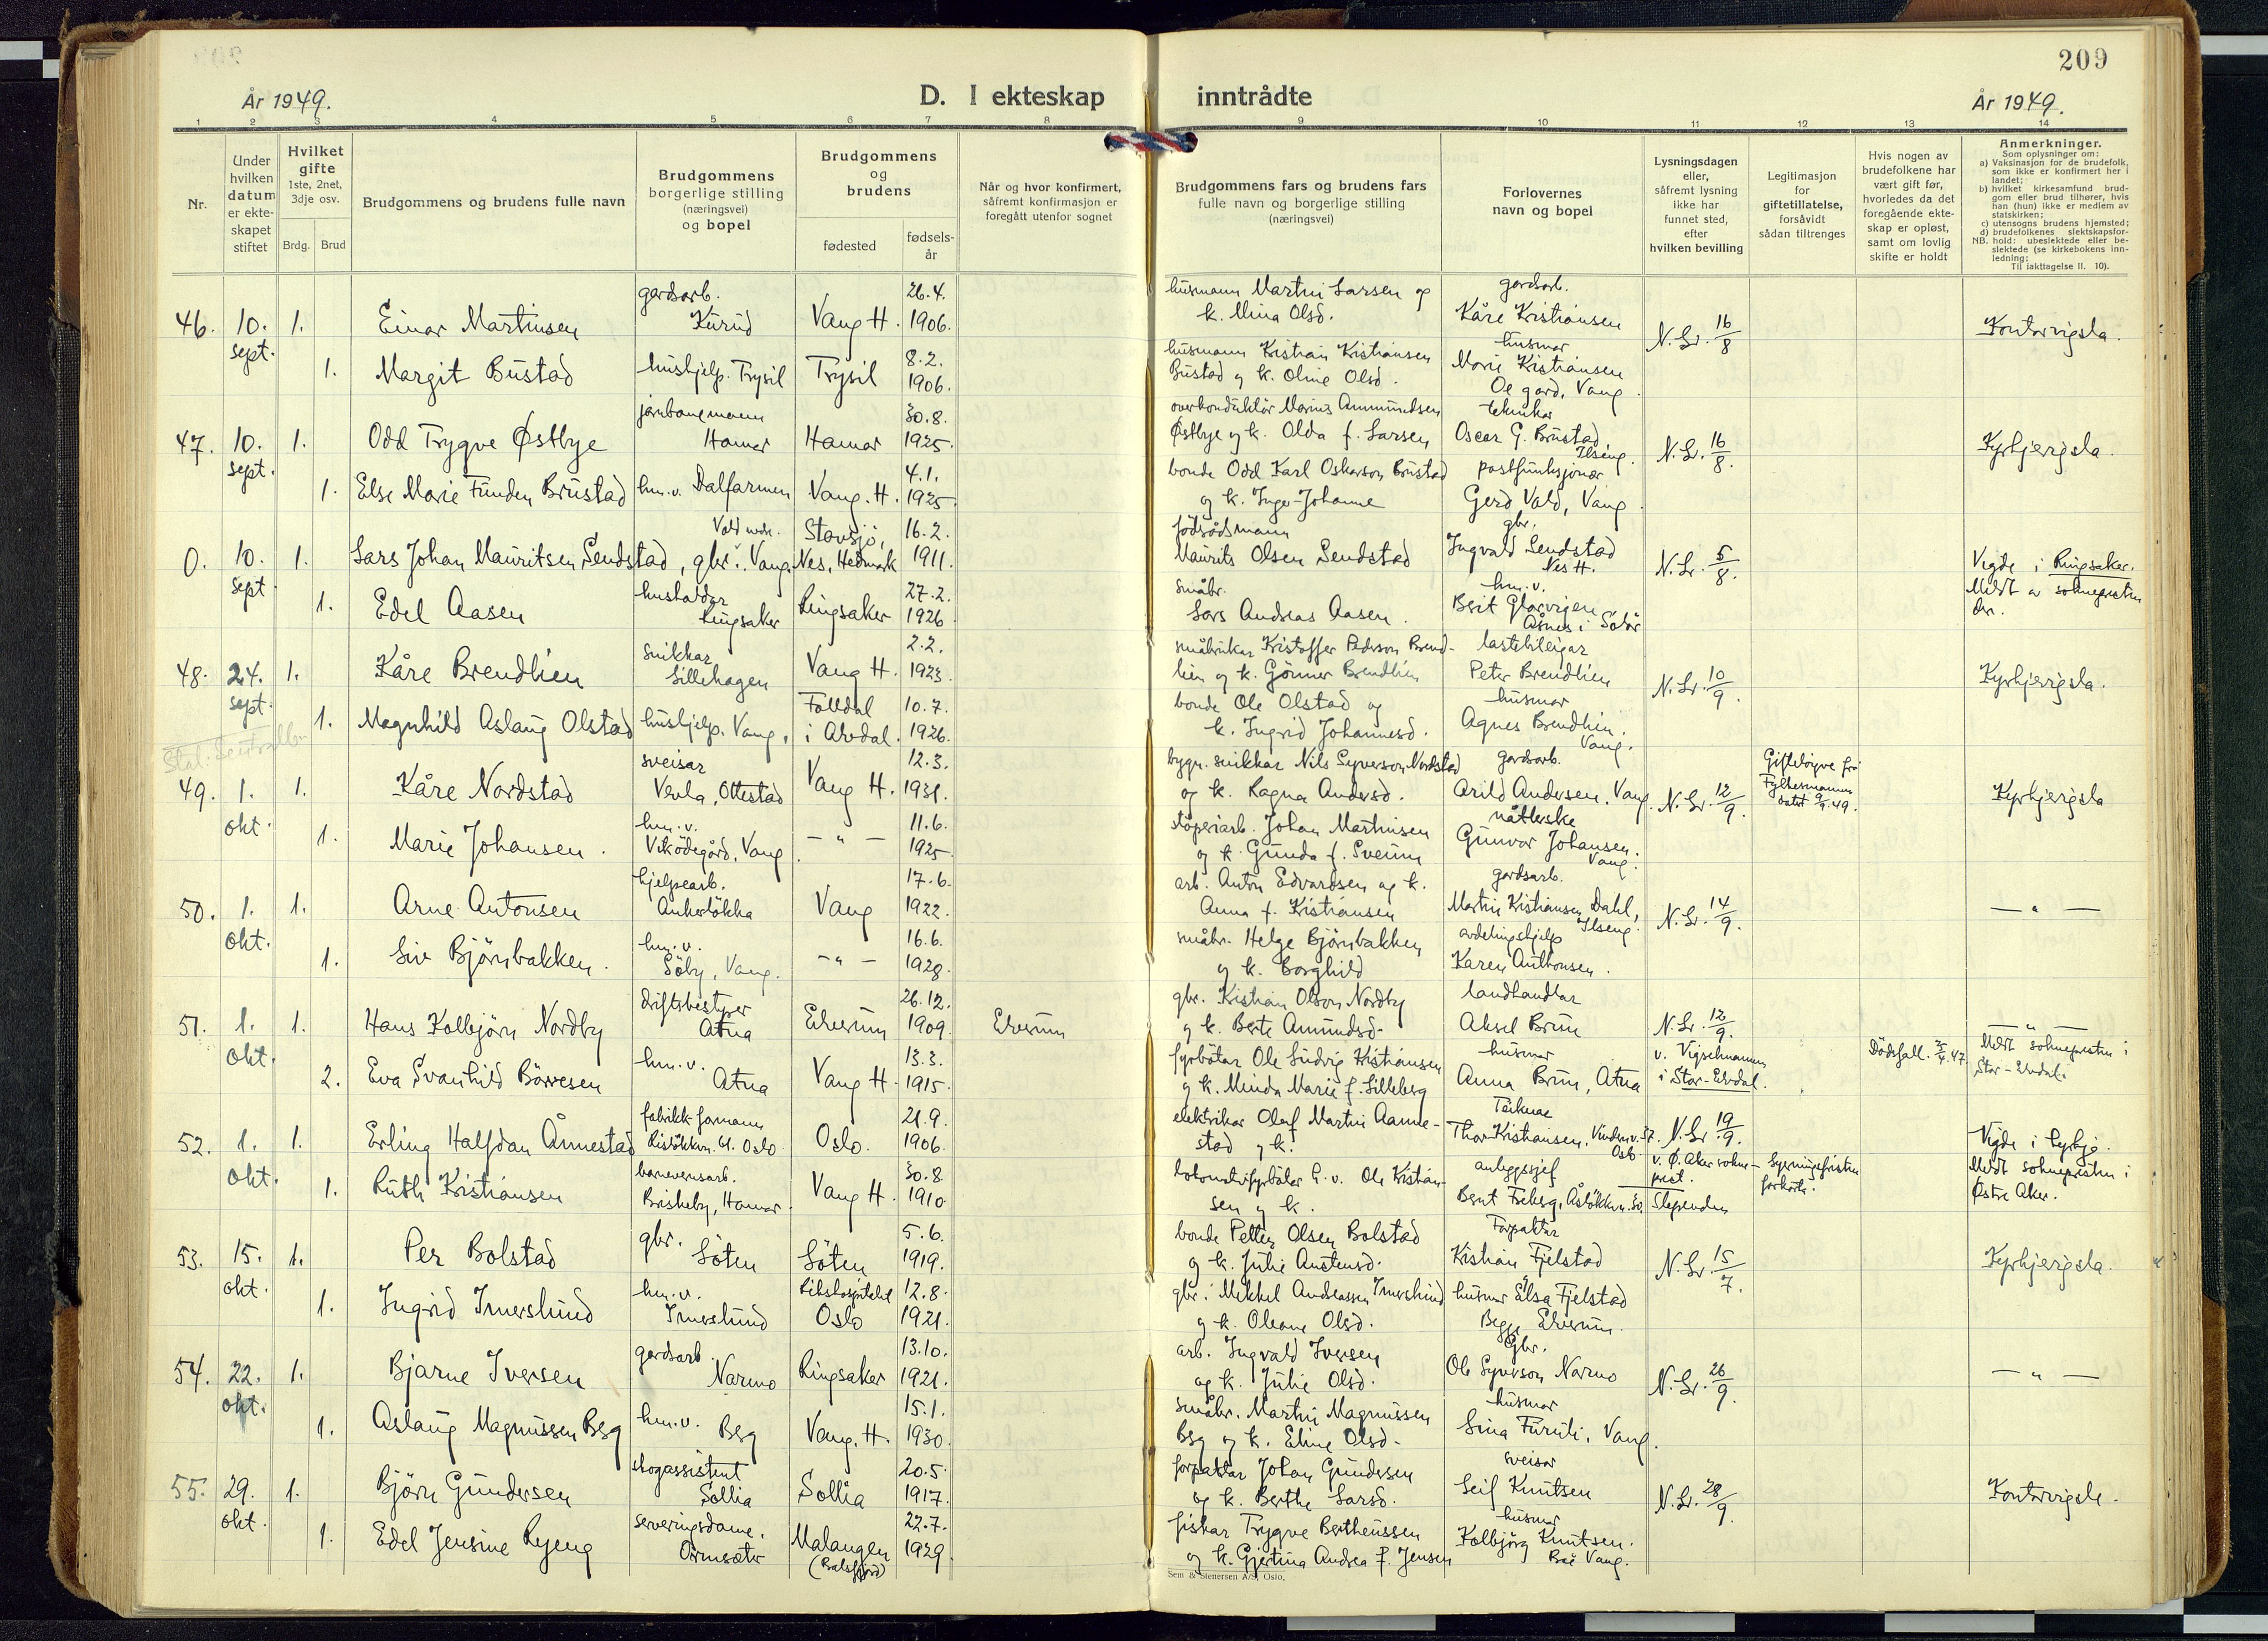 209
År 1949.
D. I ekteskap inntrådte
År 1949.
1 2 3 4 5 6 7 8 9 10 11 12 13 14
Nr.
Under hvilken datum er ekteskapet stiftet
Hvilket gifte
1ste, 2net, 3dje osv.
Brdg. Brud
Brudgommens og brudens fulle navn
Brudgommens borgerlige stilling (næringsvei) og bopel
Brudgommens og brudens
fødested
fødselsår
Når og hvor konfirmert, såfremt konfirmasjon er foregått utenfor sognet
Brudgommens fars og brudens fars fulle navn og borgerlige stilling (næringsvei)
Forlovernes navn og bopel
Lysningsdagen eller, såfremt lysning ikke har funnet sted, efter hvilken bevilling
Legitimasjon for giftetillatelse, forsåvidt sådan tiltrenges
Hvis nogen av brudefolkene har vært gift før, hvorledes da det foregående ekteskap er opløst, samt om lovlig skifte er holdt
Anmerkninger.
Som oplysninger om:
a) Vaksinasjon for de brudefolk, som ikke er konfirmert her i landet;
b) hvilket kirkesamfund brudgom eller brud tilhører, hvis han (hun) ikke er medlem av statskirken;
c) utensogns brudens hjemsted;
d) brudefolkenes slektskapsforhold: ubeslektede eller beslektede (se kirkebokens innledning;
NB.
Til iakttagelse II. 10).
46. 10. sept. 1. Einar Martinsen gardsarb. Kurud Vang H. 26.4. 1906. husmann Martin Larsen og k. Mina Olsd. gardsarb. Kåre Kristiansen N. Lr. 16/8 Kontorvigsla.
1. Margit Bustad hushjelp. Trysil Trysil 8.2. 1906. husmann Kristian Kristiansen Bustad og k. Oline Olsd. husmor Marie Kristiansen Oe gard, Vang
47. 10. sept. 1. Odd Trygve Østbye jernbanemann Hamar Hamar 30.8. 1925. overkonduktör Marius Ammundsen Østbye og k. Olda f. Larsen teknikar Oscar G. Brustad, Ilseng. N. Lr. 16/8. Kyrkjevigsla.
1. Else Marie Funden Brustad hm.v. Dalfarmen Vang. H. 4.1. 1925. bonde Odd Karl Oskarson Brustad og k. Inger Johanne postfunksjonær Gerd Vald, Vang
0. 10. sept 1. Lars Johan Mauritsen Sendstad, gbr. Vang. Stavsjö, Nes, Hedmark 16.2. 1911. födrådsmann Maurits Olsen Sendstad gbr. Ingvald Sendstad Nes H. N. Lr. 5/8. Vigde i Ringsaker. Meldt av soknepresten der.
1. Edel Aasen husholdar Ringsaker Ringsaker 27.2. 1926 småbr. Lars Andreas Aasen. hm.v. Berit Glorvigen Åsnes i Solør
48. 24. sept. 1. Kåre Brendlien snikkar Lillehagen Vang H. 2.2. 1923. småbrukar Kristoffer Pederson Brendlien og k. Gönner Brendlien lastebileigar Peter Brendlien N. Lr. 10/9. Kyrkjevigsla.
1. Magnhild Aslaug Olstad hushjelp. Vang. Folldal i Alvdal. 10.7. 1926. bonde Ole Olstad og k. Ingrid Johannesd. husmor Agnes Brendlien. Vang.
49. 1. okt. 1. Kåre Nordstad sveisar Vevla, Ottestad Vang H. 12.3. 1921. bygn. snikkar Nils Syverson Nordstad og k. Ragna Andersd. gardsarb. Arild Andersen. Vang N. Lr. 12/9. Gifteløyve frå Fylkesmannen datet 9/9.49. Kyrkjevigsla
1. Marie Johansen. hm.v. Viködegård, Vang. — " — 11.6. 1925 støperiarb. Johan Martinsen og k. Gunda f. Sveum nåtlerske Gunvor Johansen. Vang.
50. 1. okt. 1. Arne Antonsen hjelpearb. Ankerlökka Vang 17.6. 1922. arb. Anton Edvardsen og k. Anna f. Kristiansen gardsarb. Martin Kristiansen Dahl, Ilseng. N. Lr. 14/9. — " —
1. Liv Björnbakken. hm.v. Söby, Vang. — " — 16.6. 1928. småbr. Helge Björnbakken og k. Borghild avdelingshjelp Karen Anthonsen.
51. 1. okt. 1. Hans Kolbjörn Nordby driftsbestyrer Atna Elverum 26.12. 1909. Elverum gbr. Kristian Olson Nordby og k. Berte Amundsd. landhandlar Aksel Brun N. Lr. 12/9. v. Vigselmannen i Stor-Elvdal. — " — Meldt soknepresten i Stor-Elvdal.
2. Eva Svanhild Börresen hm.v. Atna Vang H. 13.3. 1915. fyrbötar Ole Ludvig Kristiansen og k. Minda Marie f. Lilleberg husmor Anna Brun, Atna Dödsfall. 3/4.47.
52. 1. okt. 1. Erling Halfdan Ånnestad fabrikk-formann Oslo. Oslo. 21.9. 1906. elektrikar Olaf Martin Aannestad og k. Teiknar Thor Kristiansen, Oslo. N. Lr 19/9. v. Ø. Aker soknepest. Vigde i Meldt soknepresten i Østre Aker.
1. Ruth Kristiansen barnevernsarb. Briskeby, Hamar. Vang H. 30.8 1910 lokomotivfyrbötar Ole Kristiansen og k. anleggssjef Slependen
53. 15. okt. 1. Per Bolstad gbr. Löten Löten 5.6. 1919. bonde Petter Olsen Bolstad og k. Julie Austensd. Forpaktar Kristian Fjelstad N. Lr. 15/7. Kyrkjevigsla.
1. Ingrid Imerslund hm.v. Imerslund Rikshospitalet Oslo 12.8. 1921. gbr. Mikkel Andreassen Imerslund og k. Oleane Olsd. husmor Elsa Fjelstad Begge Elverum.
54. 22. okt. 1. Bjarne Iversen gardsarb. Narmo Ringsaker 13.10. 1921. arb. Ingvald Iversen og k. Julie Olsd. Gbr. Ole Syverson Narmo N. Lr. 26/9. — " —
1. Aslaug Magnussen Berg hm.v. Berg Vang. H. 15.1. 1930. småbr. Martin Magnussen Berg og k. Eline Olsd. husmor Lina Furuli, Vang.
55. 29. okt. 1. Björn Gundersen skogassistent Sollia Sollia 20.5. 1917. forpaktar Johan Gundersen og k. Berthe Larsd. sveisar Leif Knutsen N. Lr. 28/9. Kontorvigsle.
1. Edel Jensine Ryeng serveringsdame. Ormseter Malangen (Balsfjord) 22.7. 1929 fiskar Trygve Bertheussen og k. Gjertina Andrea f. Jensen husmor Kolbjörg Knutsen. Vang.
Sem & Stenersen A/S, Oslo.